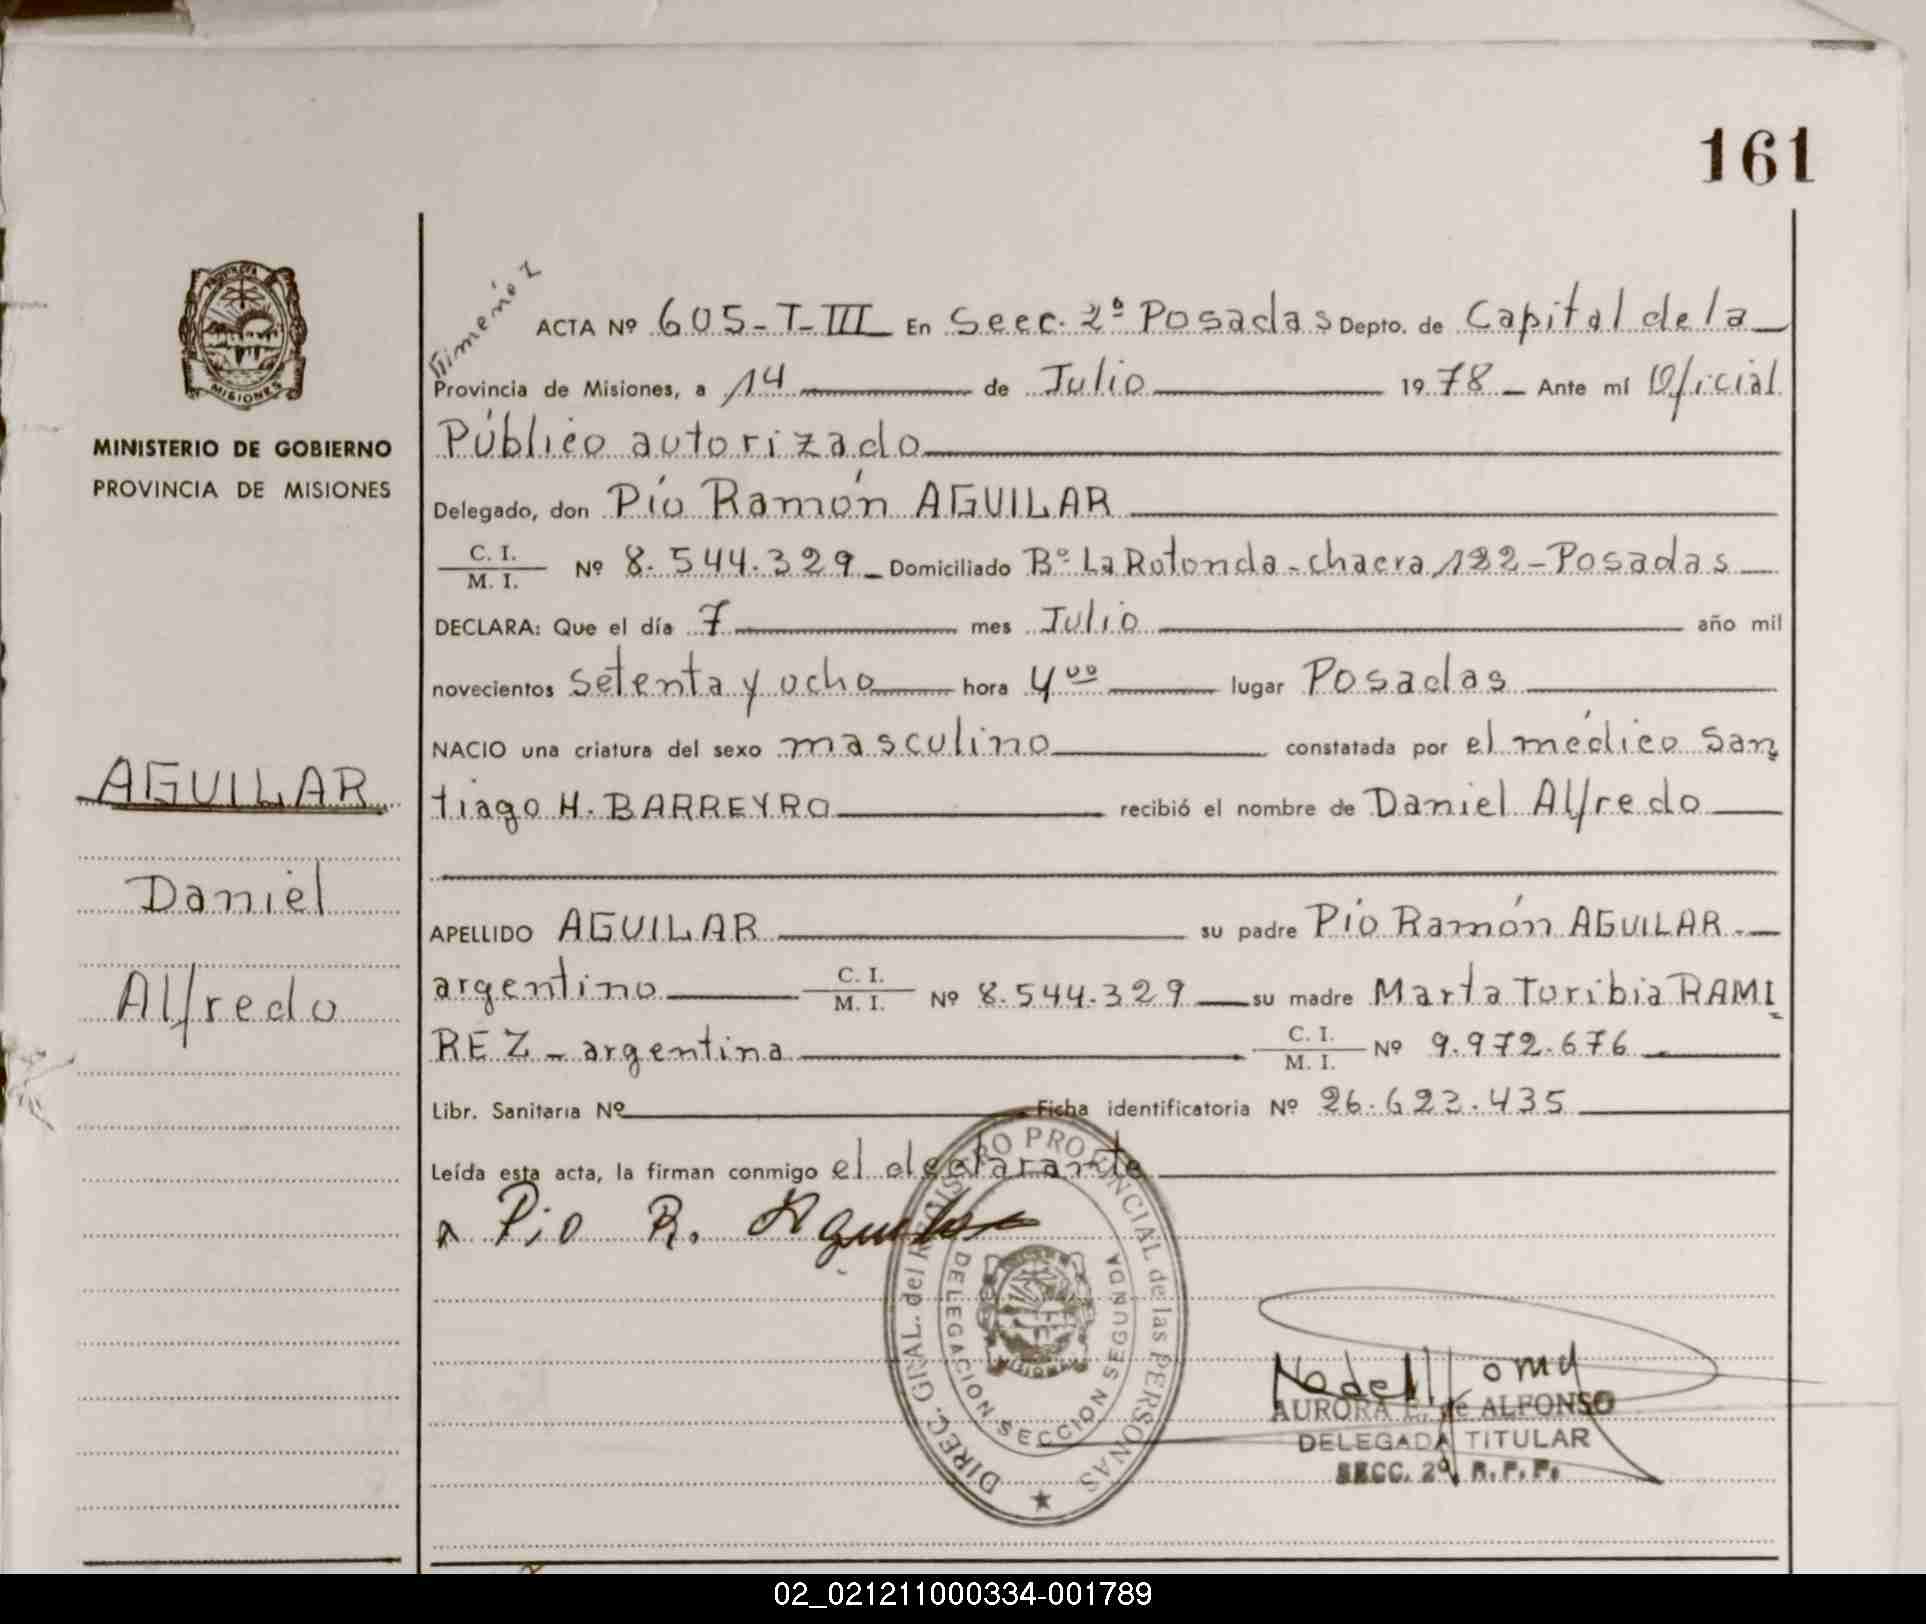 161
Himenóz
PROVINCIA
MISIONES
MINISTERIO DE GOBIERNO
PROVINCIA DE MISIONES
AGUILAR
Daniel
Alfredo
ACTA Nº 605-T-III En Secc. 2º Posadas Depto. de Capital de la
Provincia de Misiones, a 14 de Julio 1978 Ante mí Oficial
Público autorizado
Delegado, don Pío Ramón AGUILAR
C. I.
M. I. Nº 8.544.329 Domiciliado Bº La Rotonda - chacra 122 - Posadas
DECLARA: Que el día 7 mes Julio año mil
novecientos setenta y ocho hora 4⁰⁰ lugar Posadas
NACIO una criatura del sexo masculino constatada por el médico San
tiago H. BARREYRO recibió el nombre de Daniel Alfredo
APELLIDO AGUILAR su padre Pío Ramón AGUILAR.
argentino C. I. M. I. Nº 8.544.329 su madre Marta Toribia RAMI
REZ - argentina C. I. M. I. Nº 9.972.676
Libr. Sanitaria Nº Ficha identificatoria Nº 26.623.435
Leída esta acta, la firman conmigo el declarante
Pio R. Aguilar
DIREC. GRAL. del REGISTRO PROVINCIAL de las PERSONAS
DELEGACION SECCION SEGUNDA
AURORA E. de ALFONSO
DELEGADA TITULAR
SECC. 2º R. P. P.
02_021211000334-001789